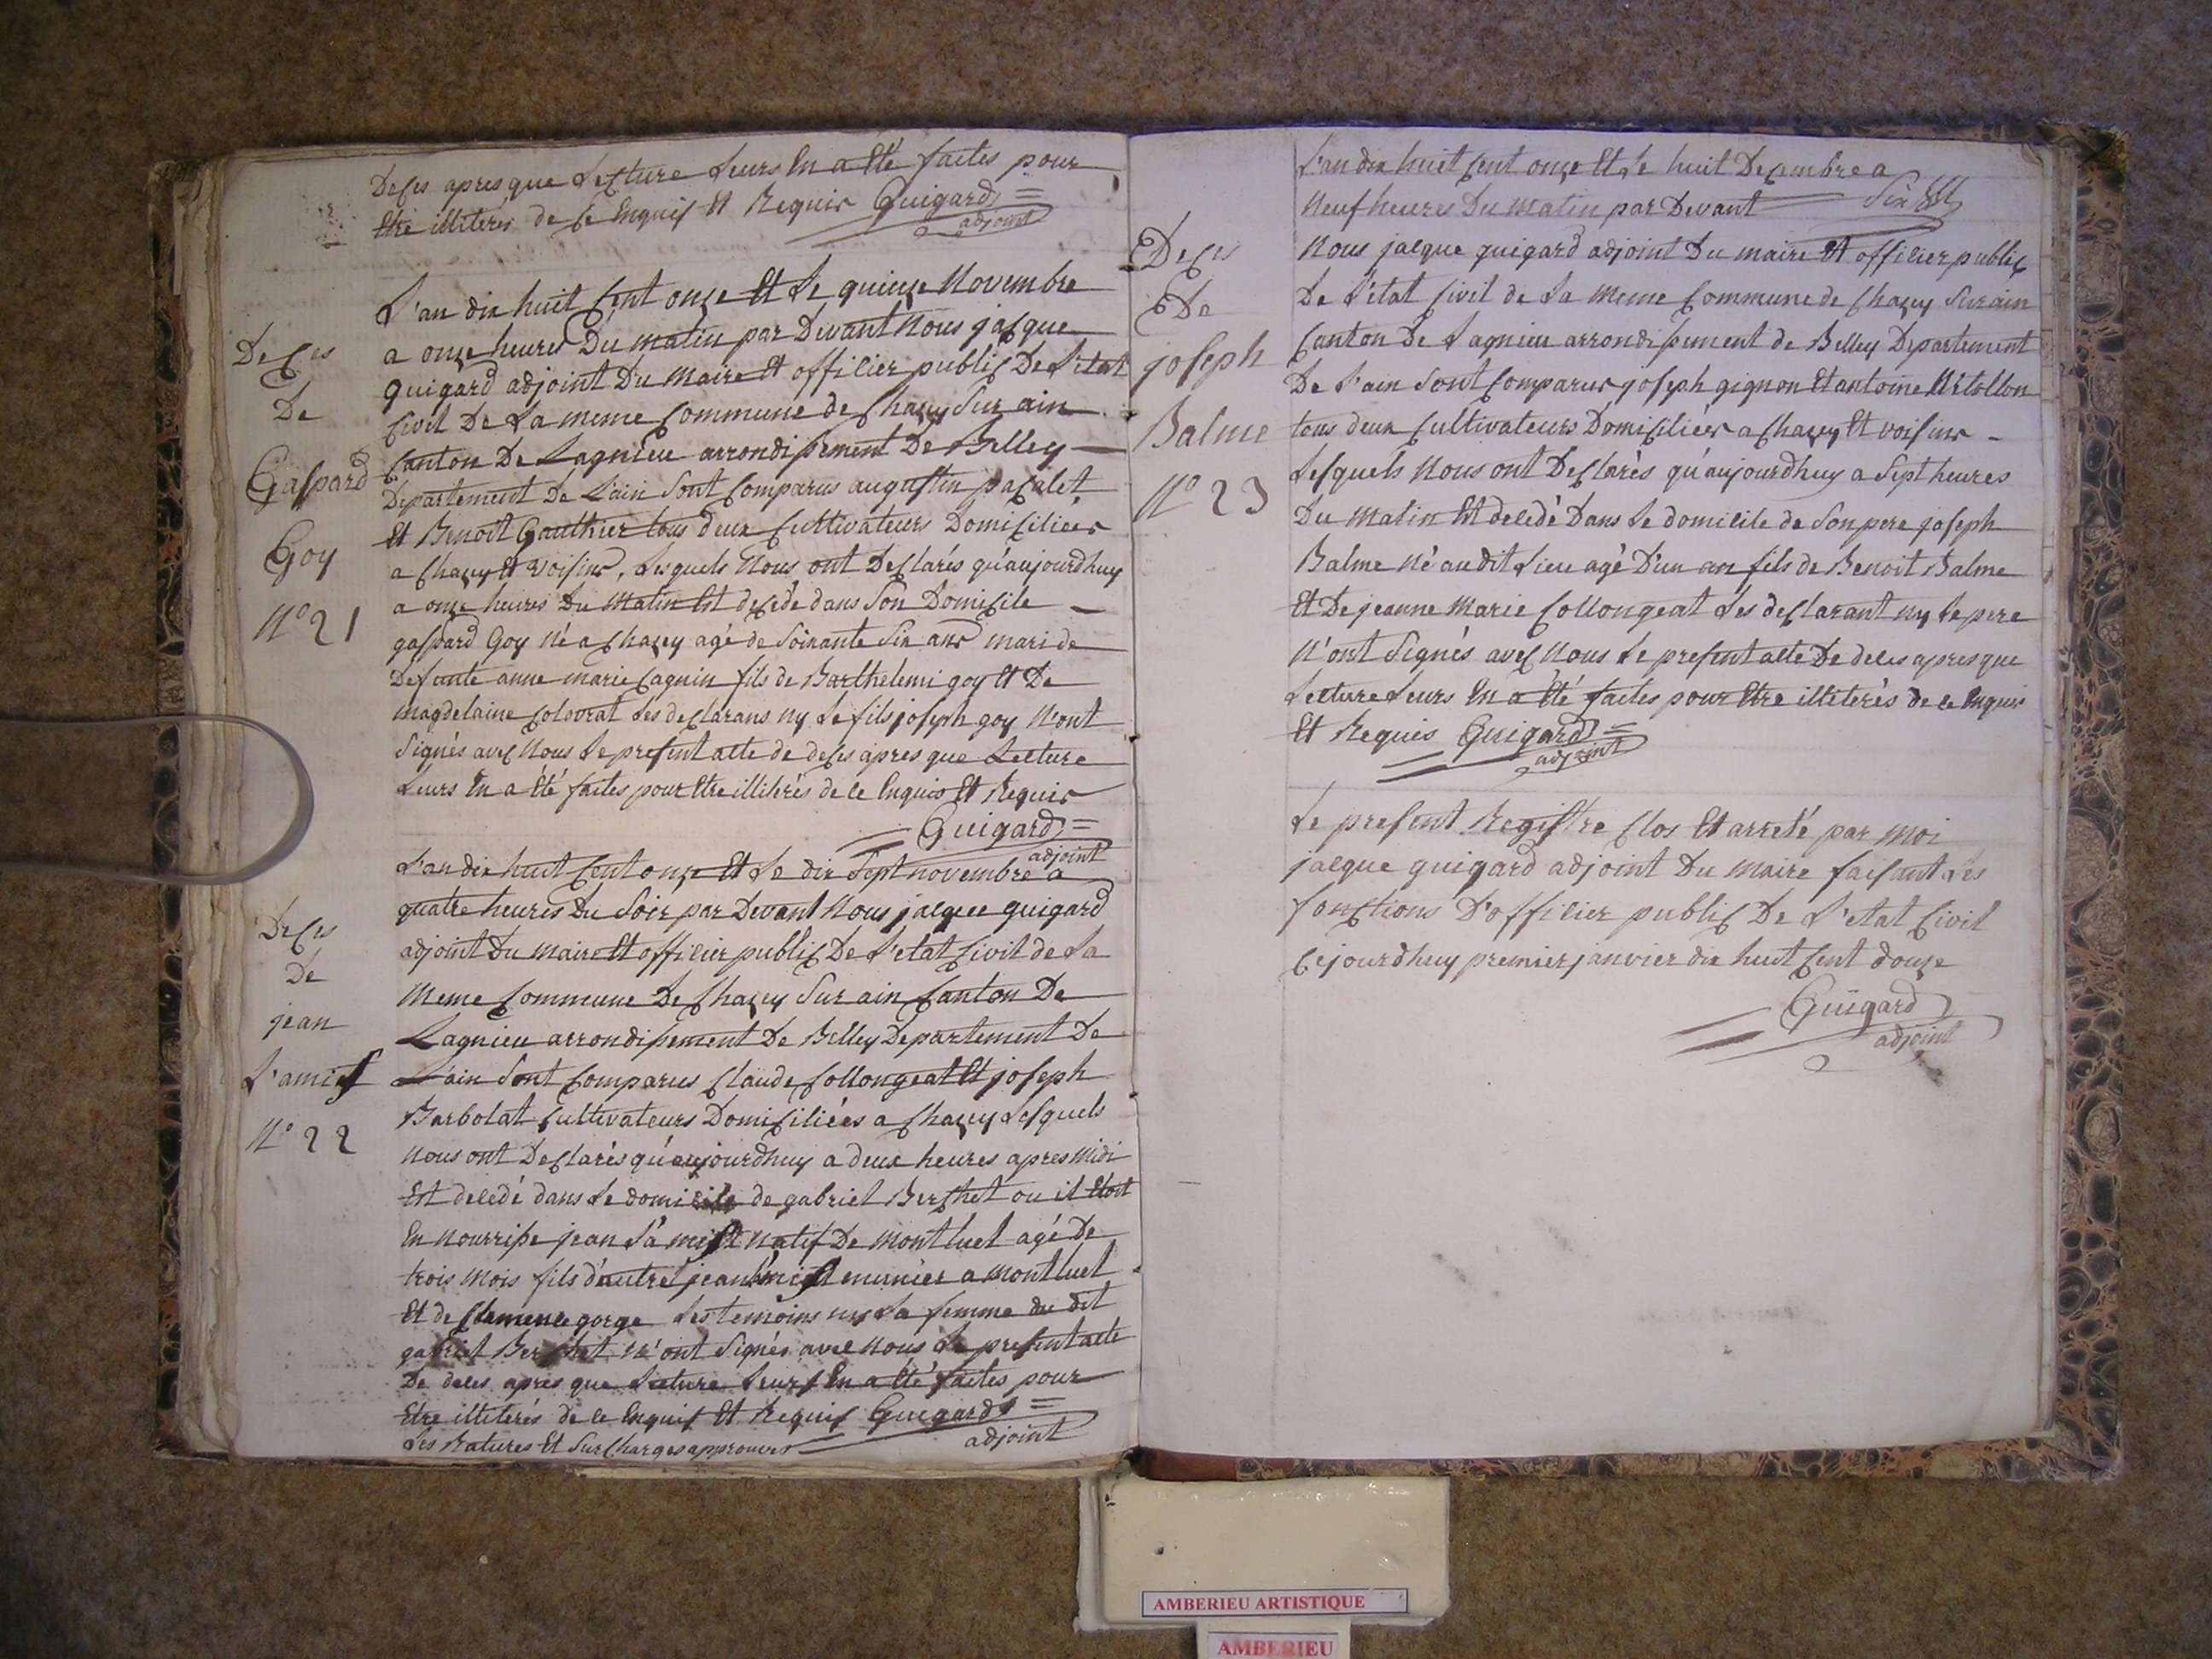 Deces apres que Lecture Leurs En a Eté faites pour
Etre illiterés de ce Enquis Et Requis Guigard =
adjoint
Deces
De
Gaspard
Goy
N° 21
L'an dix huit Cent onze Et Le quinze Novembre
a onze heures Du matin par Devant Nous jacque
guigard adjoint Du Maire Et officier public De L'etat
Civil De La meme Commune de Chazey Sur ain
Canton De Lagnieu arrondissement De Belley
Departement De L'ain Sont Comparus augustin pacalet
Et Benoit Gauthier tous deux Cultivateurs Domiciliées
a Chazey Et Voisins, Lesquels Nous ont Declarés qu'aujourdhuy
a onze heures Du Matin Est decedé dans Son Domicile
gaspard Goy Né a Chazey agé de Soixante Six ans mari de
Defunte anne marie Cagnin fils de Barthelemi goy Et De
magdelaine Colovrat Les declarans ny Le fils joseph goy N'ont
Signés avec Nous Le present acte de deces apres que Lecture
Leurs En a Eté faites pour Etre illiterés de ce Enquis Et Requis
Guigard =
adjoint
Deces
De
jean
L'amis
N° 22
L'an dix huit Cent onze Et Le dix Sept novembre a
quatre heures Du Soir par Devant Nous jacque guigard
adjoint Du Maire Et officier public De L'etat Civil de La
Meme Commune De Chazey Sur ain Canton De
Lagnieu arrondissement De Belley Departement De
L'ain Sont Comparus Claude Collongeat Et joseph
Barbolat Cultivateurs Domiciliées a Chazey Lesquels
Nous ont Declarés qu'aujourdhuy a deux heures apres Midi
Est decedé dans Le domicile de gabriel Berchet ou il Etoit
En Nourrisse jean natif De montluel agé De
trois Mois fils d'autre jean munier a Montluel
Et de Clemence gorge Les temoins ny La femme du dit
gabriel Berchet N'ont Signés avec Nous Le present acte
De deces apres que Lecture Leurs En a Eté faites pour
Etre illiterés de ce Enquis Et Requis Guigard =
adjoint
Les Ratures Et Surcharges approuves
Deces
De
joseph
Balme
N° 23
L'an dix huit Cent onze Et Le huit Decembre a
Neuf heures Du Matin par Devant
Nous jacque guigard adjoint Du maire Et officier public
De L'etat Civil de La Meme Commune de Chazey Sur ain
Canton De Lagnieu arrondissement de Belley Departement
De L'ain Sont Comparus joseph gignon Et antoine
tous deux Cultivateurs Domiciliées a Chazey Et voisins
Lesquels Nous ont Declarés qu'aujourdhuy a Sept heures
Du Matin Est decedé Dans Le domicile de Son pere joseph
Balme Né au dit Lieu agé D'un an fils de Benoit Balme
Et De jeanne Marie Collongeat Les declarant ny Le pere
N'ont Signés avec Nous Le present acte De deces apres que
Lecture Leurs En a Eté faites pour Etre illiterés de ce Enquis
Et Requis Guigard =
adjoint
Le present Registre Clos Et arreté par Moi
jacque guigard adjoint Du Maire faisant Les
fonctions D'officier public De L'etat Civil
Cejourdhuy premier janvier dix huit Cent douze
Guigard
adjoint
AMBERIEU ARTISTIQUE
AMBERIEU